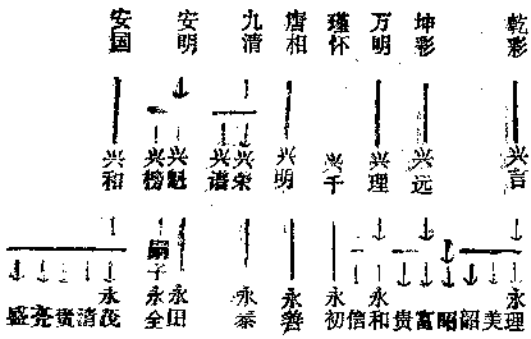 乾彩
坤彩
万明
瑾怀
唐相
九清
安明
安国
兴言
兴远
兴理
兴千
兴明
兴荣
兴谱
兴魁
兴榜
兴和
永理
美
韶
昭
富
贵
永和
信
永初
永善
永泰
永田
嗣子永全
永茂
清
贵
亮
盛